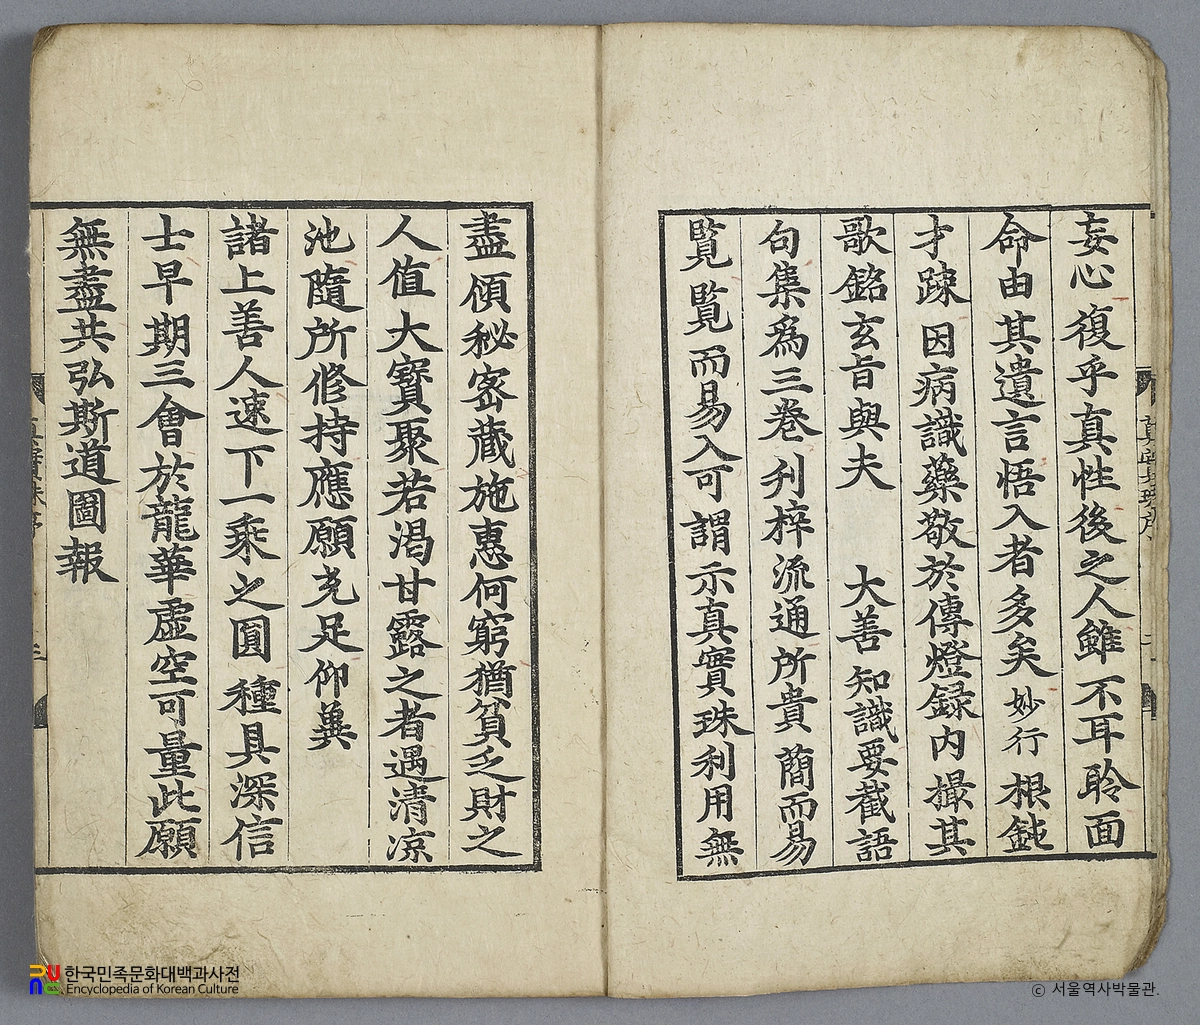 妄心復乎真性後之人雖不耳聆面
命由其遺言悟入者多矣妙行根鈍
才踈因病識藥敬於傳燈録内撮其
歌銘玄旨與夫 大善知識要截語
句集爲三巻刋梓流通所貴蕳而易
覧覧而易入可謂示真實珠利用無
盡傾秘密藏施惠何窮猶貧乏財之
人值大寳聚若渴甘露之者遇清凉
池隨所修持應願充足仰兾
諸上善人速下一乘之圓種具深信
士早期三會於龍華虛空可量此願
無盡共弘斯道圖報
한국민족문화대백과사전
Encyclopedia of Korean Culture
ⓒ 서울역사박물관.